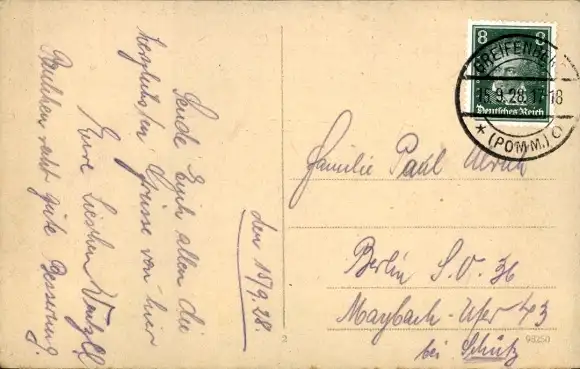 Sende Euch allen die
herzlichsten Grüsse von hier
Eure Lieschen
recht gute Besserung.
den 15/9.28.
8 8
Deutsches Reich
GREIFENBERG
15.9.28.17-18
* (POMM.) O
Familie Paul Ulrich
Berlin S.O. 36
Maybach-Ufer 43
bei Schütz
2